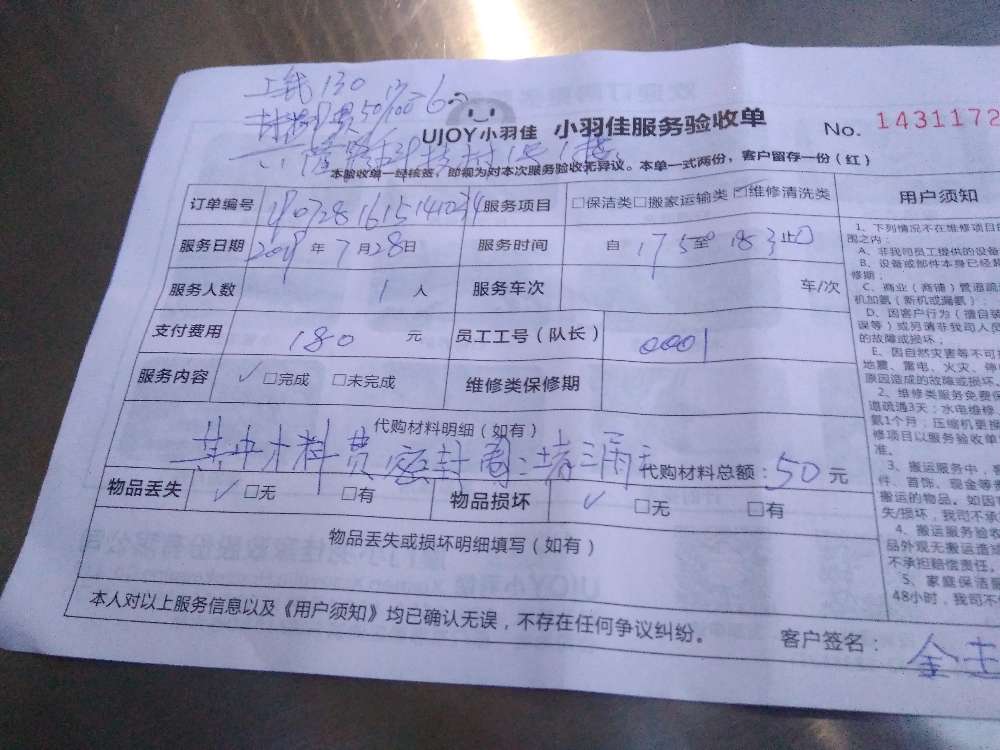 工钱130
材料费50
UJOY小羽佳 小羽佳服务验收单 No. 1431172
本验收单一经核签，即视为对本次服务验收无异议。本单一式两份，客户留存一份（红）
订单编号 服务项目 □保洁类□搬家运输类□维修清洗类 用户须知
服务日期 2019年7月28日 服务时间 自 至 止
服务人数 1 人 服务车次 车/次
支付费用 180 元 员工工号（队长） 0001
服务内容 ✓□完成 □未完成 维修类保修期
代购材料明细（如有）
其中材料费密封圈 堵漏 代购材料总额：50元
物品丢失 ✓□无 □有 物品损坏 ✓□无 □有
物品丢失或损坏明细填写（如有）
本人对以上服务信息以及《用户须知》均已确认无误，不存在任何争议纠纷。
客户签名：金
1、下列情况不在维修项目
围之内：
A、非我司员工提供的设备
B、设备或部件本身已经
修期；
C、商业（商铺）管道疏
机加氨（新机或漏氨）；
D、因客户行为（擅自装
误等）或另请非我司人员
的故障或损坏；
E、因自然灾害等不可
地震、雷电、火灾、停
原因造成的故障或损坏
2、维修类服务免费保
道疏通3天；水电维修
氨1个月；压缩机更换
修项目以服务验收单
准。
3、搬运服务中，
件、首饰、现金等
搬运的物品。如因
失/损坏，我司不承
4、搬运服务验收
品外观无搬运造
不承担赔偿责任。
5、家庭保洁
48小时，我司不